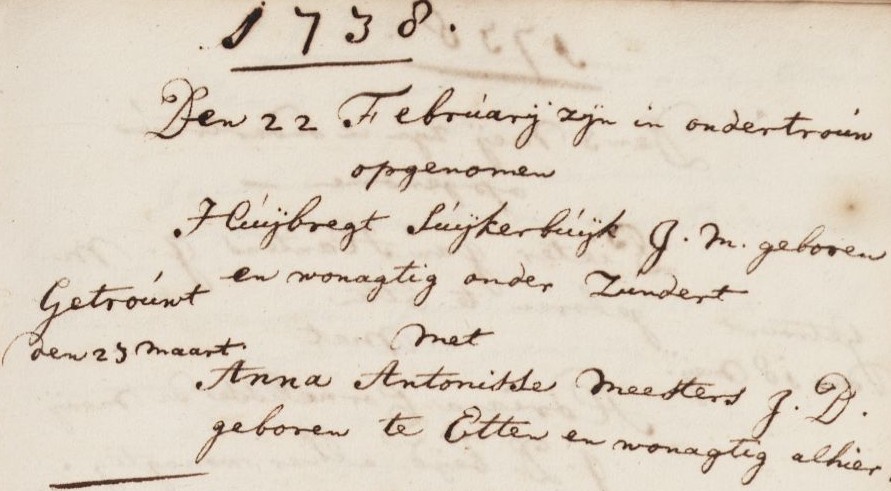 1738.
Den 22 Februarij zijn in ondertroún
opgenomen
Húijbregt Súijkerbúijk J. M. geboren
en wonagtig onder Zúndert
Getroúwt
den 23 maart.
met
Anna Antonisse Meesters J. D.
geboren te Etten en wonagtig alhier.